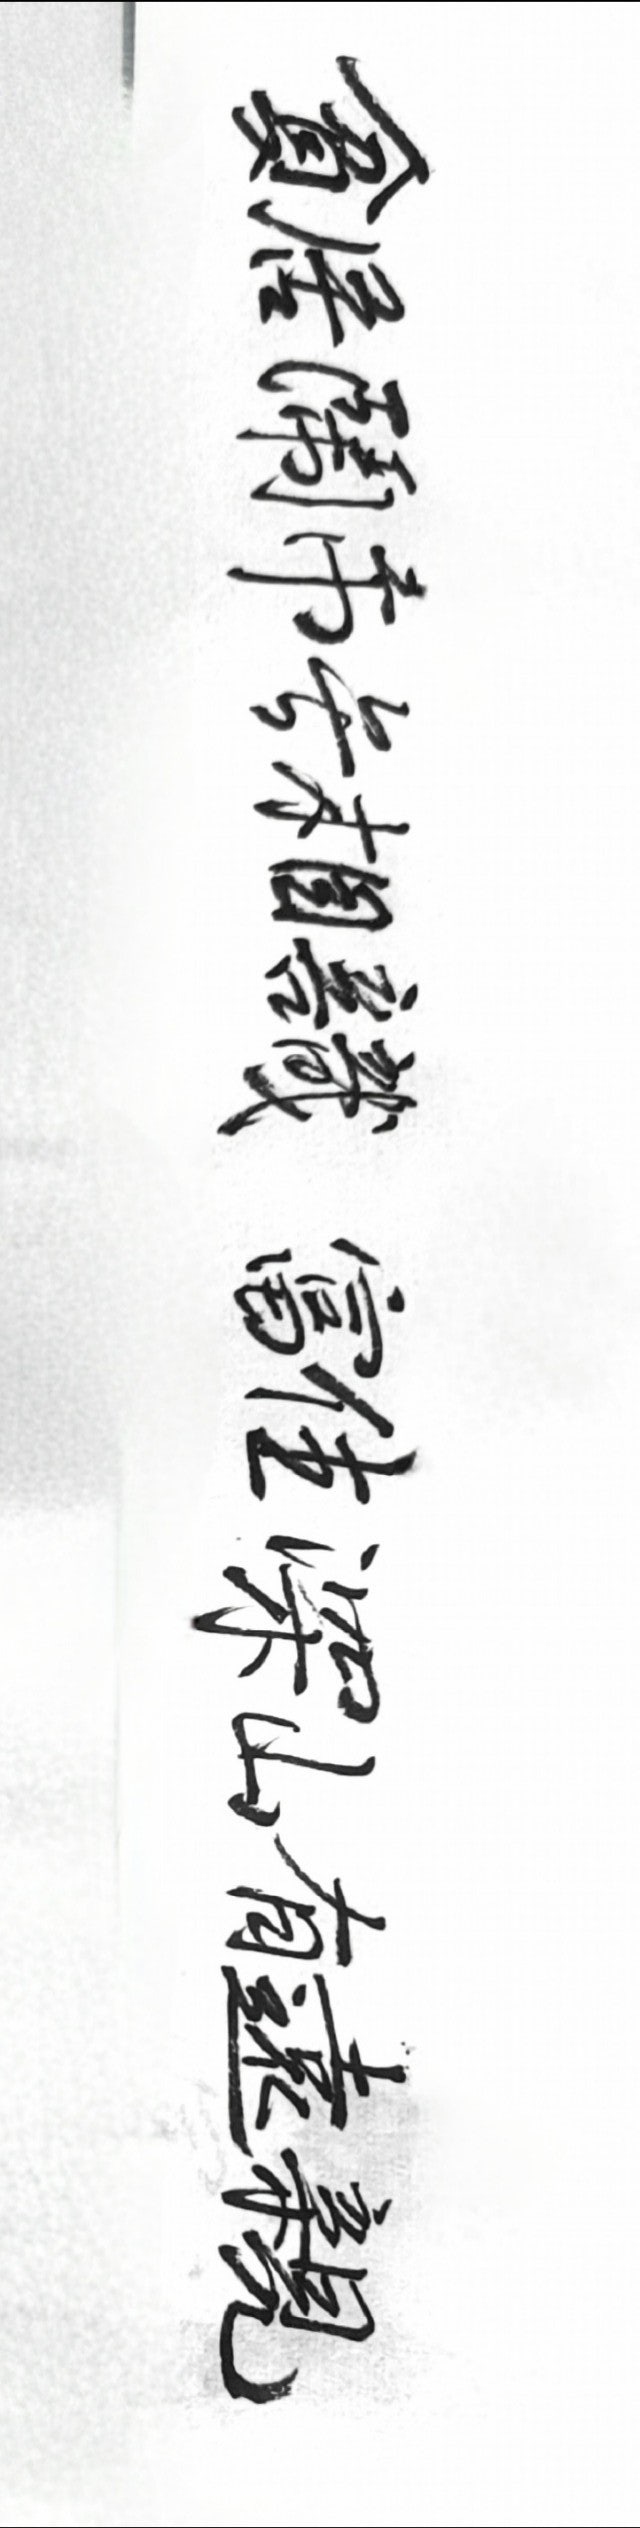 貧居鬧市無相識 富住深山有遠親